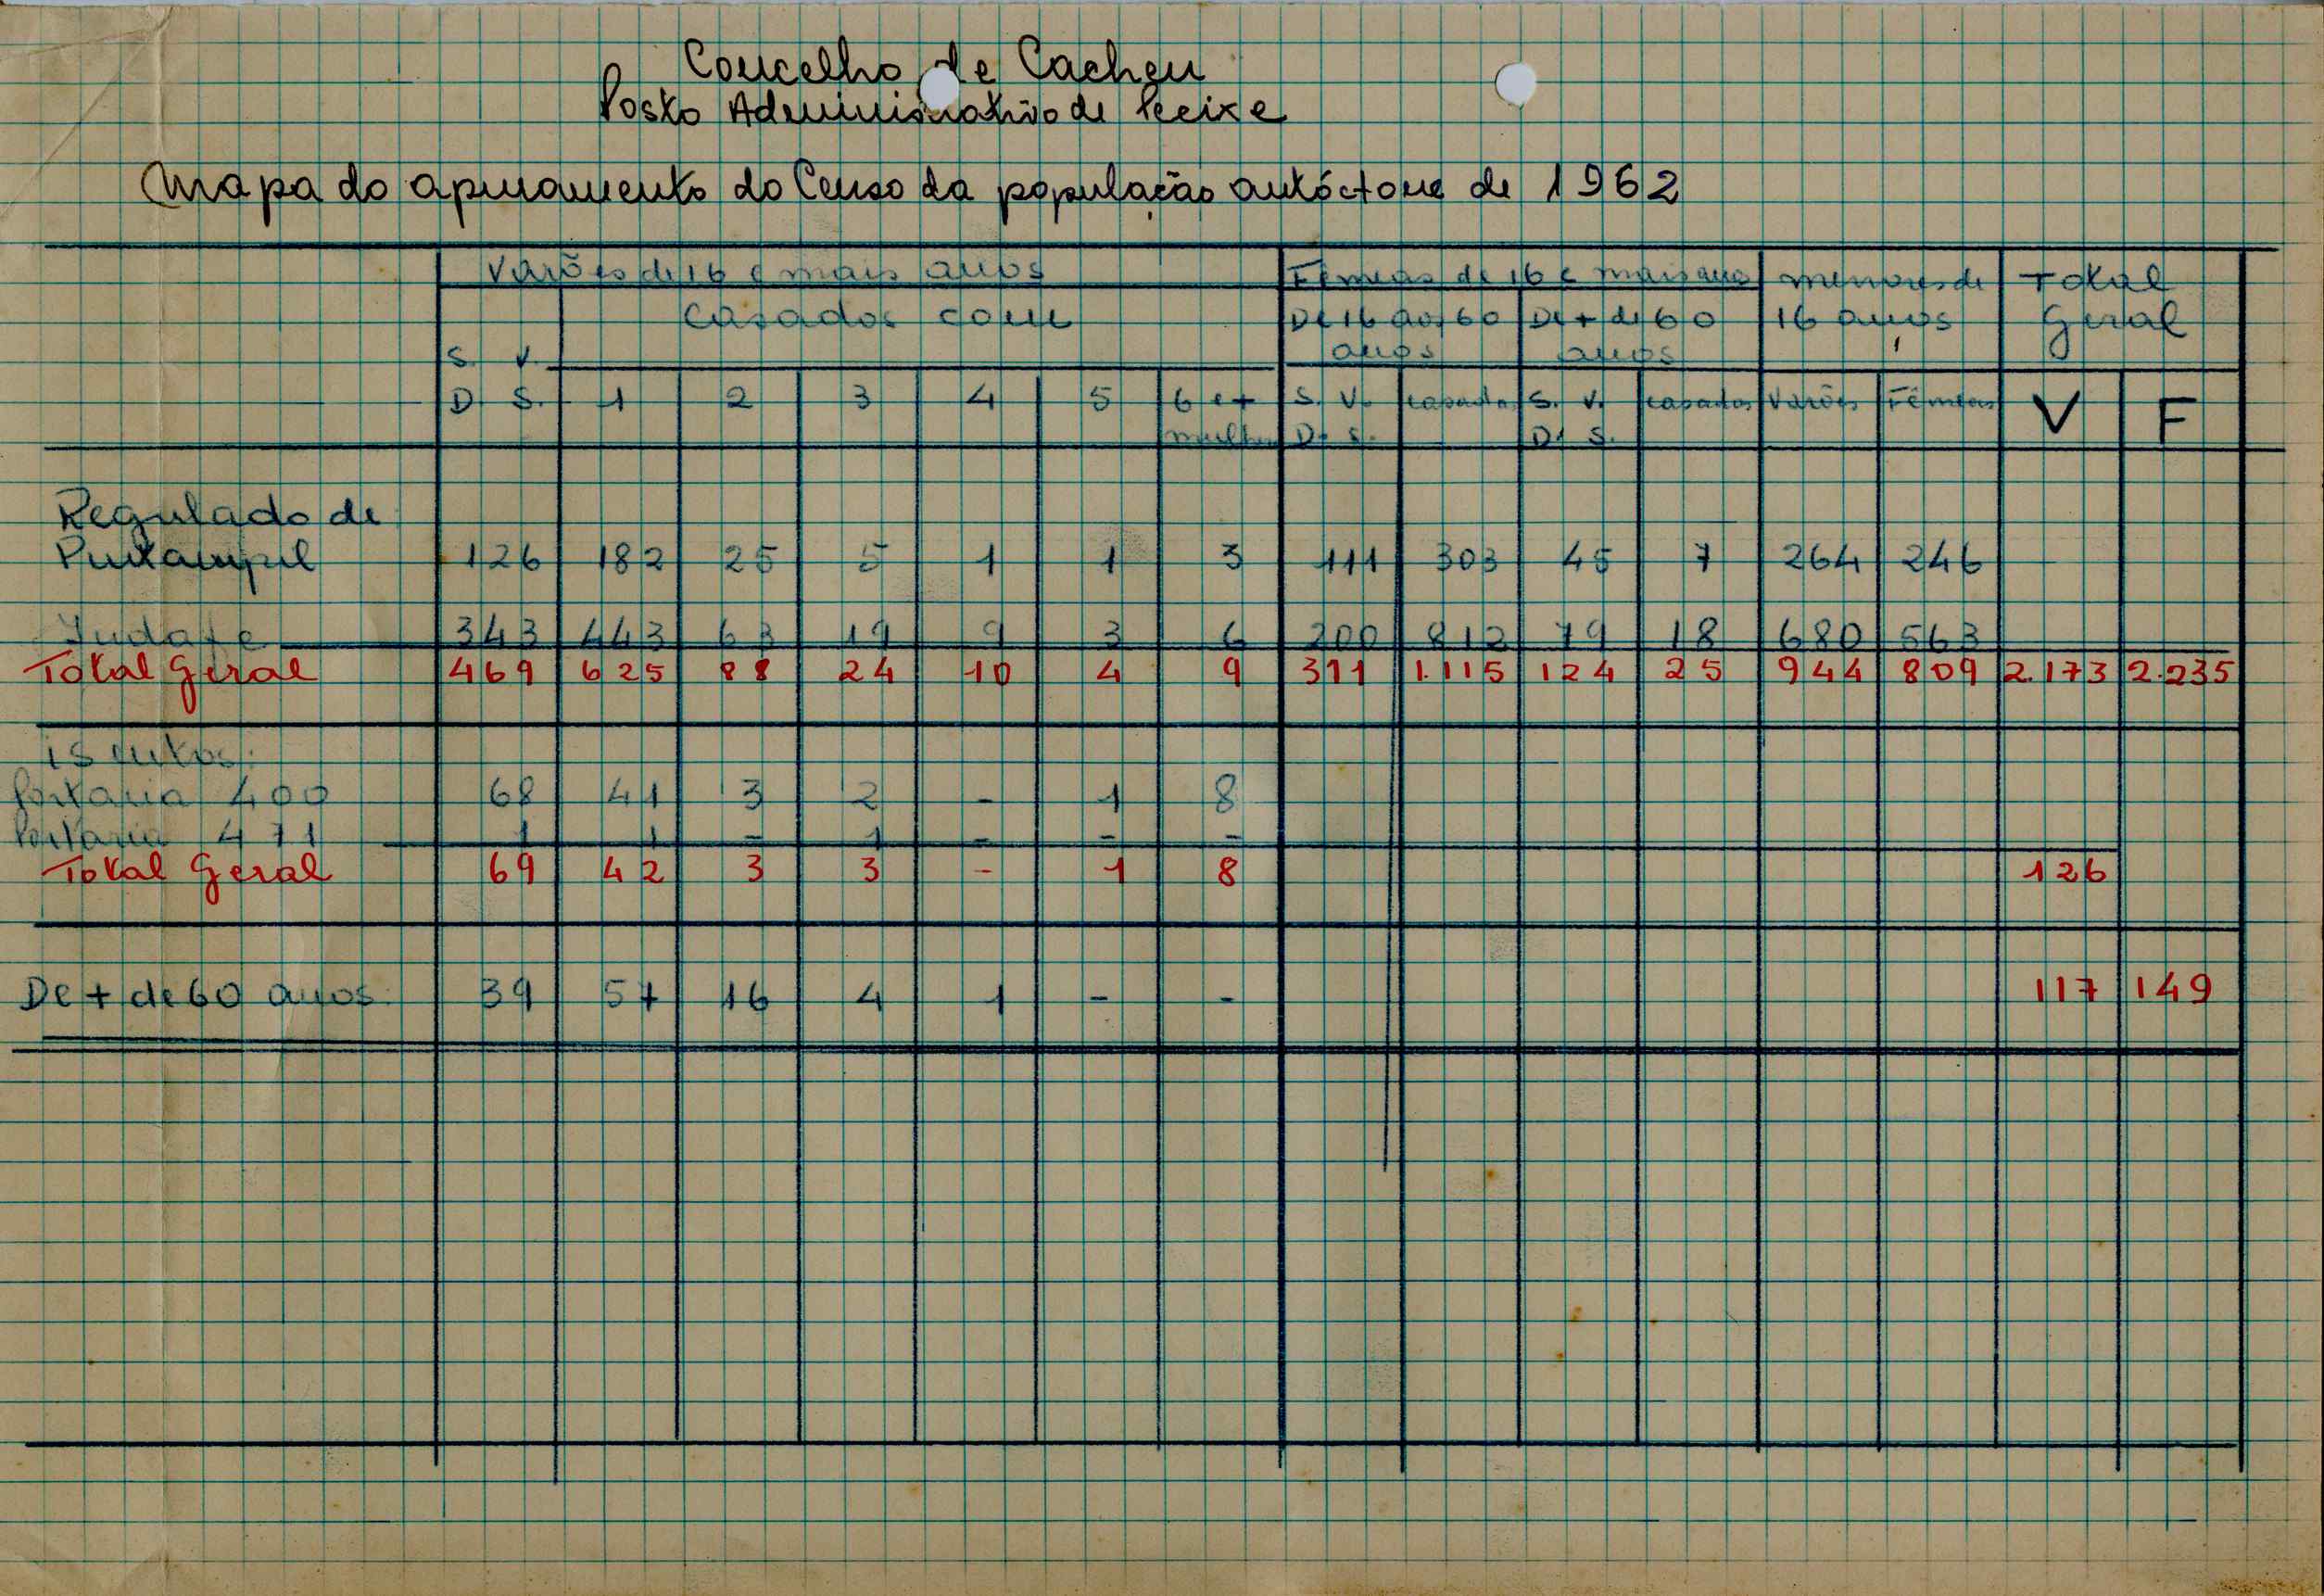 Concelho de Cacheu
Posto Administrativo de Pecixe
Mapa do apuramento do Censo da população autóctone de 1962
Varões de 16 e mais anos Fêmeas de 16 e mais anos menores de Total
Casados com De 16 aos 60 De + de 60 16 anos Geral
S. V. anos anos
D. S. 1 2 3 4 5 6 e + S. V. casadas S. V. casadas Varões Fêmeas V F
mulheres D. S. D. S.
Regulado de
126 182 25 5 1 1 3 111 303 45 7 264 246
343 443 63 19 9 3 6 200 812 79 18 680 563
Total Geral 469 625 88 24 10 4 9 311 1.115 124 25 944 809 2.173 2.235
isentos:
Portaria 400 68 41 3 2 - 1 8
Portaria 471 1 1 - 1 - - -
Total Geral 69 42 3 3 - 1 8 126
De + de 60 anos: 39 57 16 4 1 - - 117 149